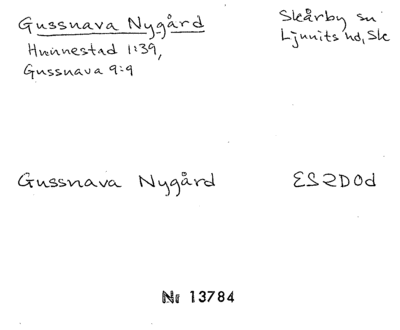 Gussnava Nygård
Hunnestad 1:39,
Gussnava 9:9
Skårby sn
Ljunits hd, Sk
Gussnava Nygård
ES2D0d
Nr 13784